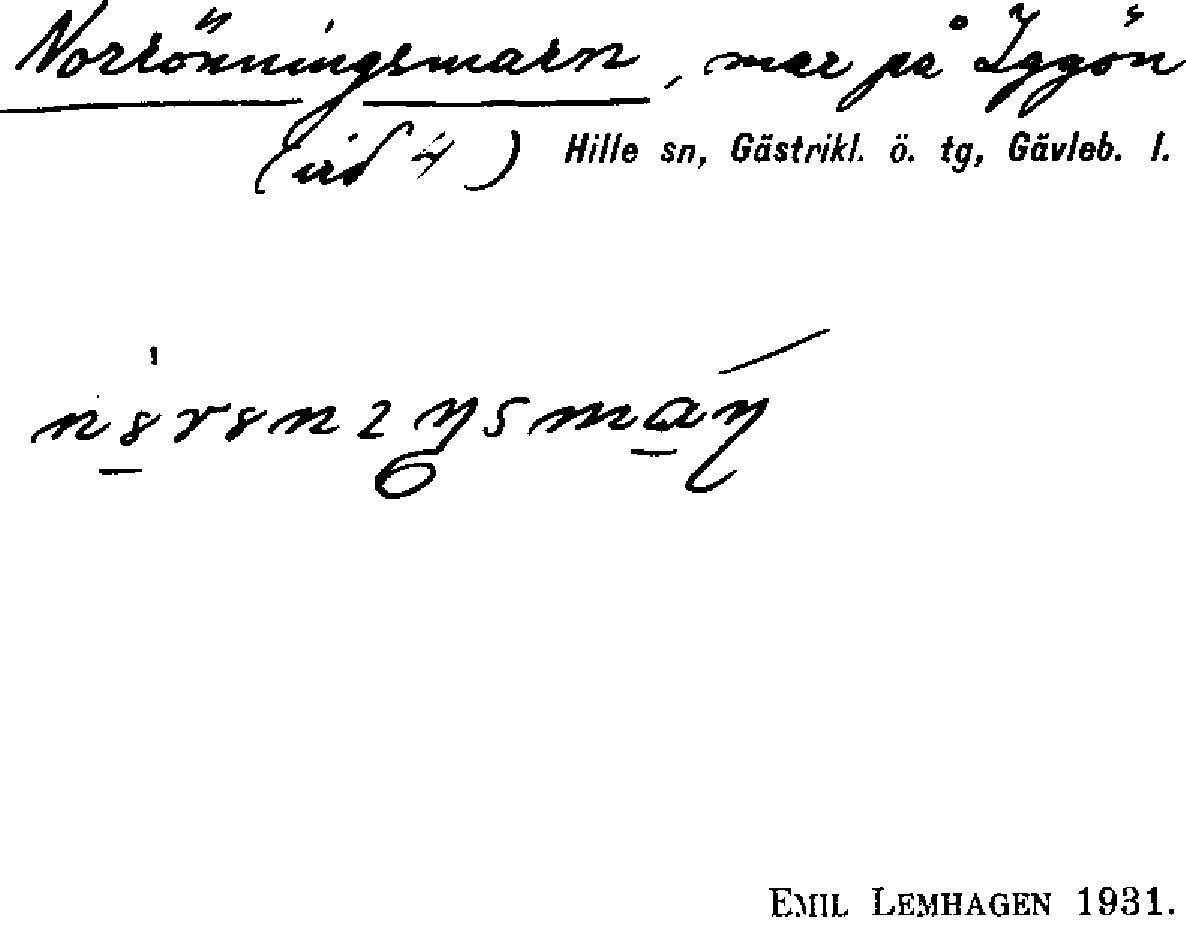 Norrönningsmarn, mar på Iggön
(vid 4) Hille sn, Gästrikl. ö. tg, Gävleb. l.
EMIL LEMHAGEN 1931.